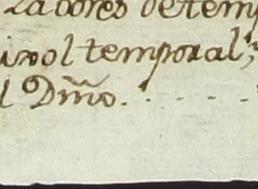 Labores de temp
ivol temporal,
l Dm̃o. . - - - -